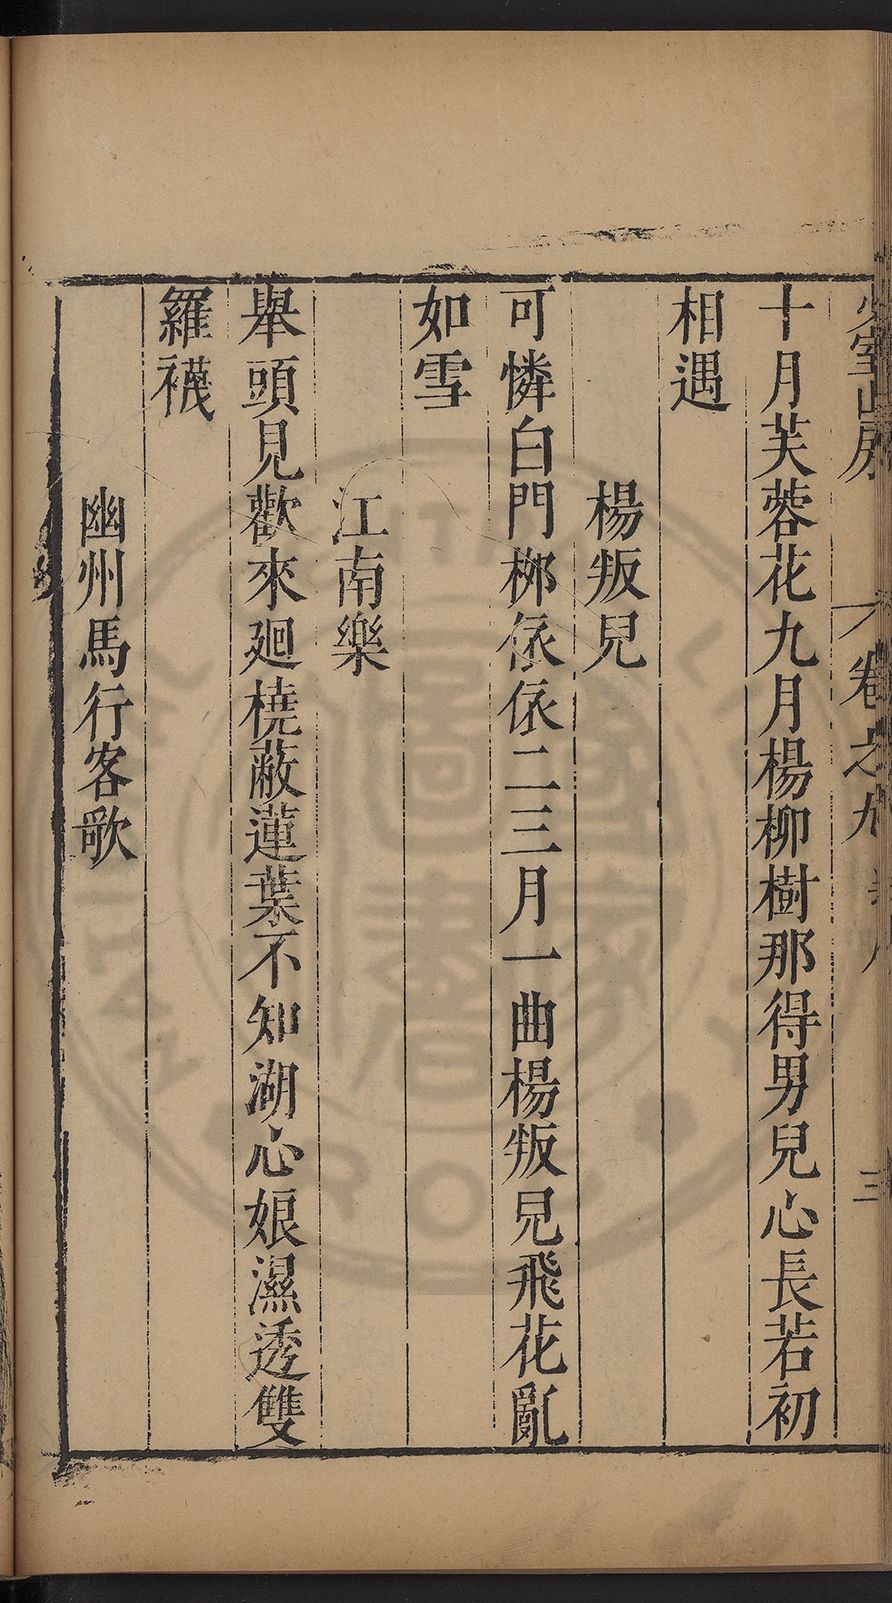 少室山房
卷之九
三
十月芙蓉花九月楊柳樹那得男兒心長若初
相遇
楊叛兒
可憐白門桞依依二三月一曲楊叛兒飛花亂
如雪
江南樂
舉頭見歡來廻橈蔽蓮葉不知湖心娘濕透雙
羅襪
幽州馬行客歌